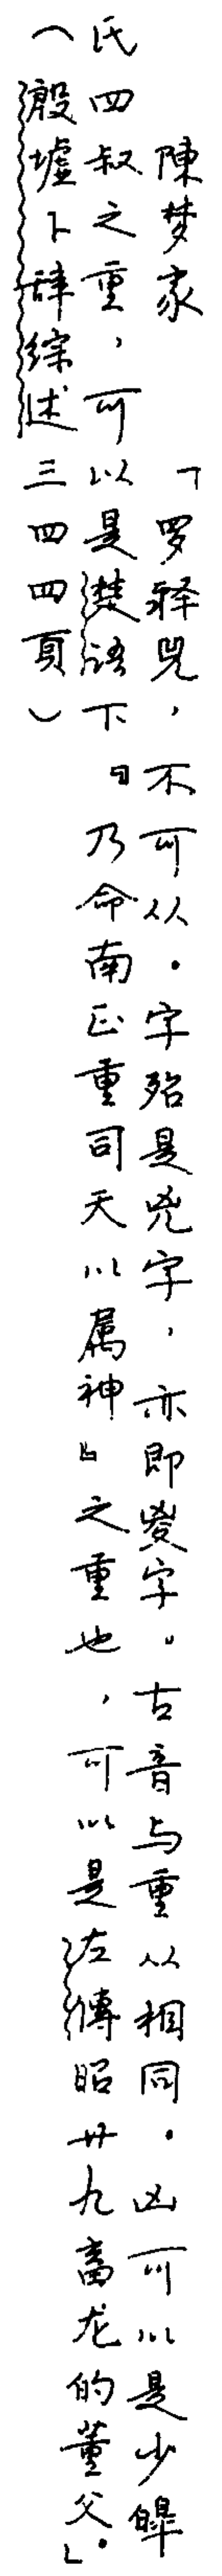 陳梦家　「罗释兕，不可从．字殆是兇字，亦即㚇字。古音与重从相同．凶可以是少皡
氏四叔之重，可以是楚语下『乃命南正重司天以属神』之重也，可以是左傳昭廿九畜龙的董父」．
（殷墟卜辞综述三四四頁）